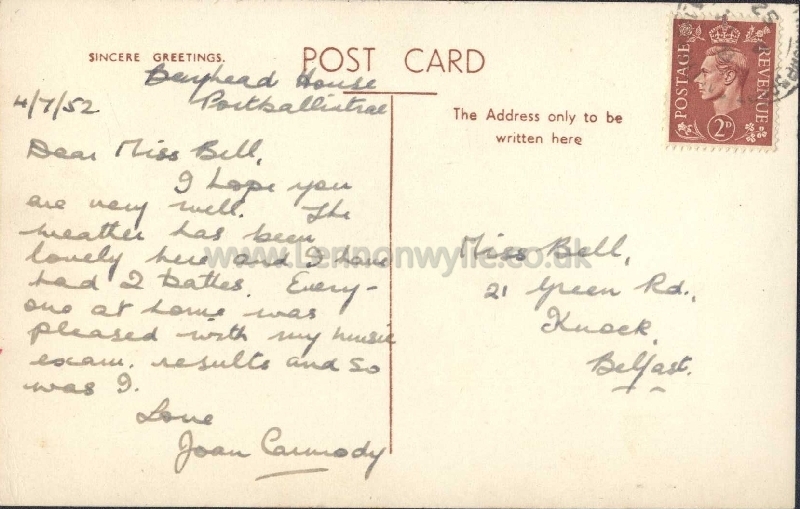 SINCERE GREETINGS.
POST CARD
Bayhead House
Portballintrae
4/7/52
Dear Miss Bell,
I hope you
are very well. The
weather has been
lovely here and I have
had 2 bathes. Every-
one at home was
pleased with my music
exam. results and so
was I.
Love
Joan Carmody
The Address only to be
written here
Miss Bell,
21 Green Rd.,
Knock,
Belfast.
POSTAGE
REVENUE
2D
www.Lennonwylie.co.uk